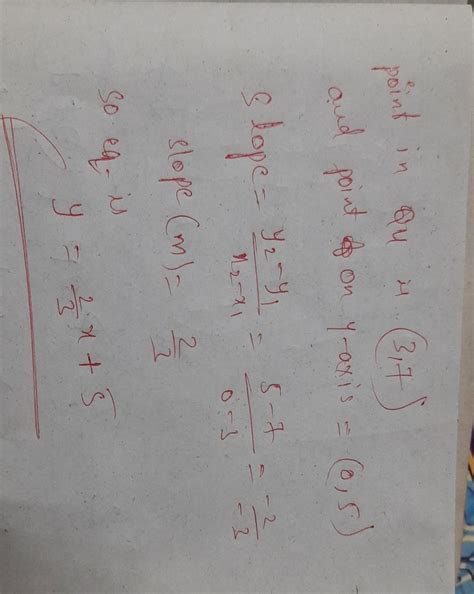 point in Qu is (3,7)
and point on y-axis = (0,5)
Slope = y2-y1/x2-x1 = 5-7/0-3 = -2/-3
slope (m) = 2/3
so eq. is
y = 2/3 x + 5